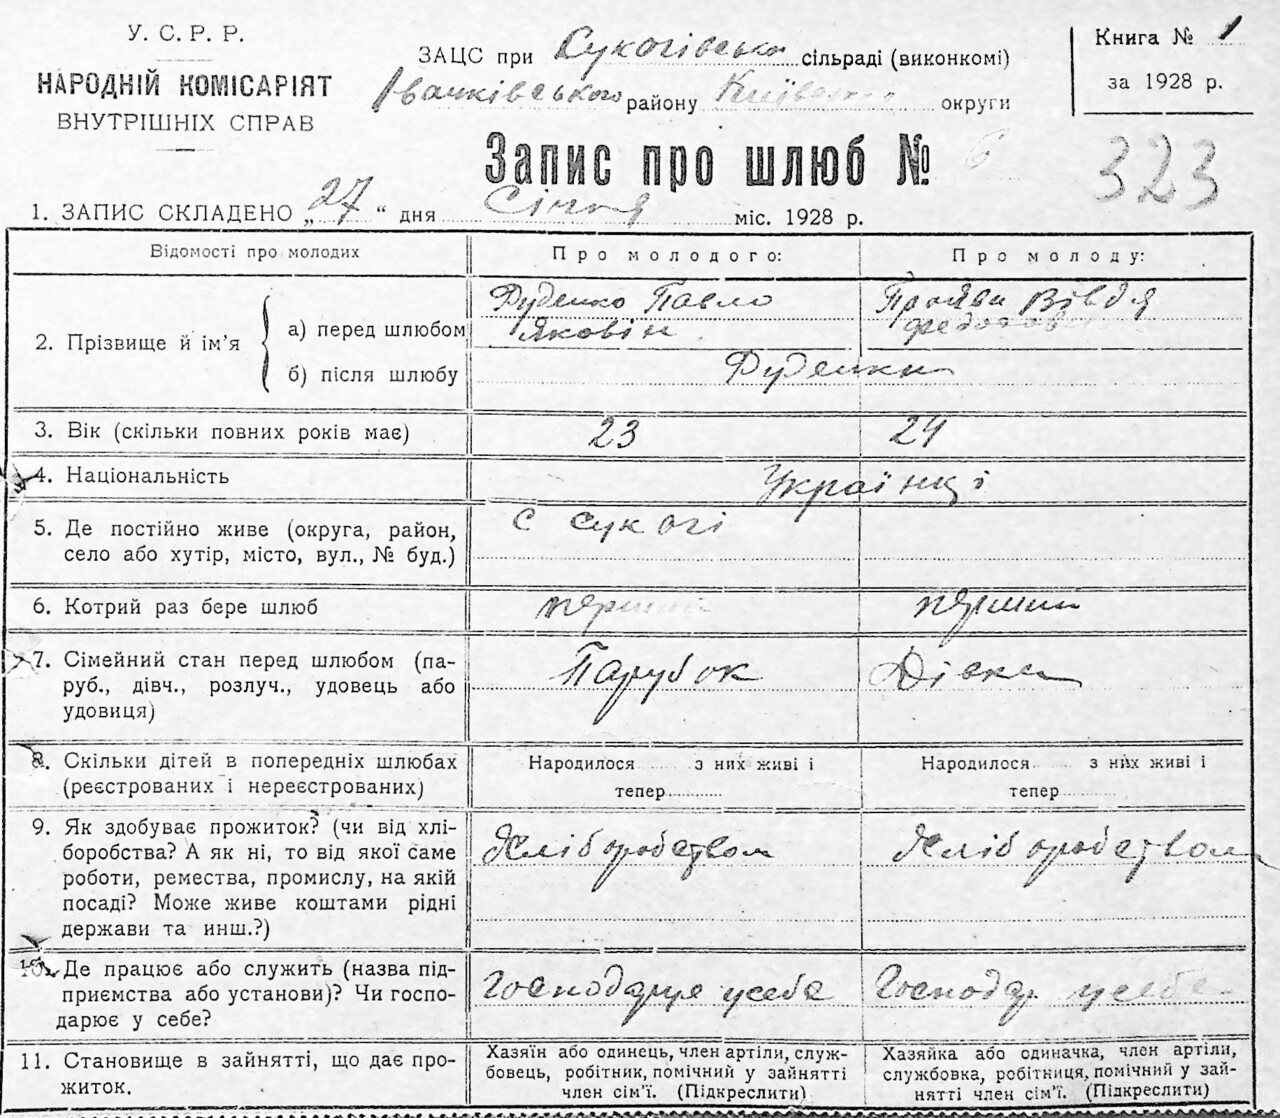 У. С. Р. Р.
НАРОДНІЙ КОМІСАРІЯТ
ВНУТРІШНІХ СПРАВ
ЗАЦС при Сукачівській сільраді (виконкомі)
Іванківського району Київської округи
Книга № 1
за 1928 р.
Запис про шлюб № 6
323
1. ЗАПИС СКЛАДЕНО „27“ дня Січня міс. 1928 р.
Відомості про молодих
Про молодого:
Про молоду:
2. Прізвище й ім’я
а) перед шлюбом
Руденко Павло
Яковін
Вівдя
б) після шлюбу
Руденки
3. Вік (скільки повних років має)
23
24
4. Національність
Українці
5. Де постійно живе (округа, район,
село або хутір, місто, вул., № буд.)
с Сукачі
6. Котрий раз бере шлюб
перший
перший
7. Сімейний стан перед шлюбом (па-
руб., дівч., розлуч., удовець або
удовиця)
Парубок
Дівка
8. Скільки дітей в попередніх шлюбах
(реєстрованих і нереєстрованих)
Народилося з них живі і
тепер
Народилося з них живі і
тепер
9. Як здобуває прожиток? (чи від хлі-
боробства? А як ні, то від якої саме
роботи, ремества, промислу, на якій
посаді? Може живе коштами рідні
держави та инш.?)
Хліборобством
Хліборобством
10. Де працює або служить (назва під-
приємства або установи)? Чи госпо-
дарює у себе?
Господарює усебе
Господар усебе
11. Становище в зайнятті, що дає про-
житок.
Хазяїн або одинець, член артіли, служ-
бовець, робітник, помічний у зайнятті
член сім’ї. (Підкреслити)
Хазяйка або одиначка, член артіли,
службовка, робітниця, помічний у зай-
нятті член сім’ї. (Підкреслити)